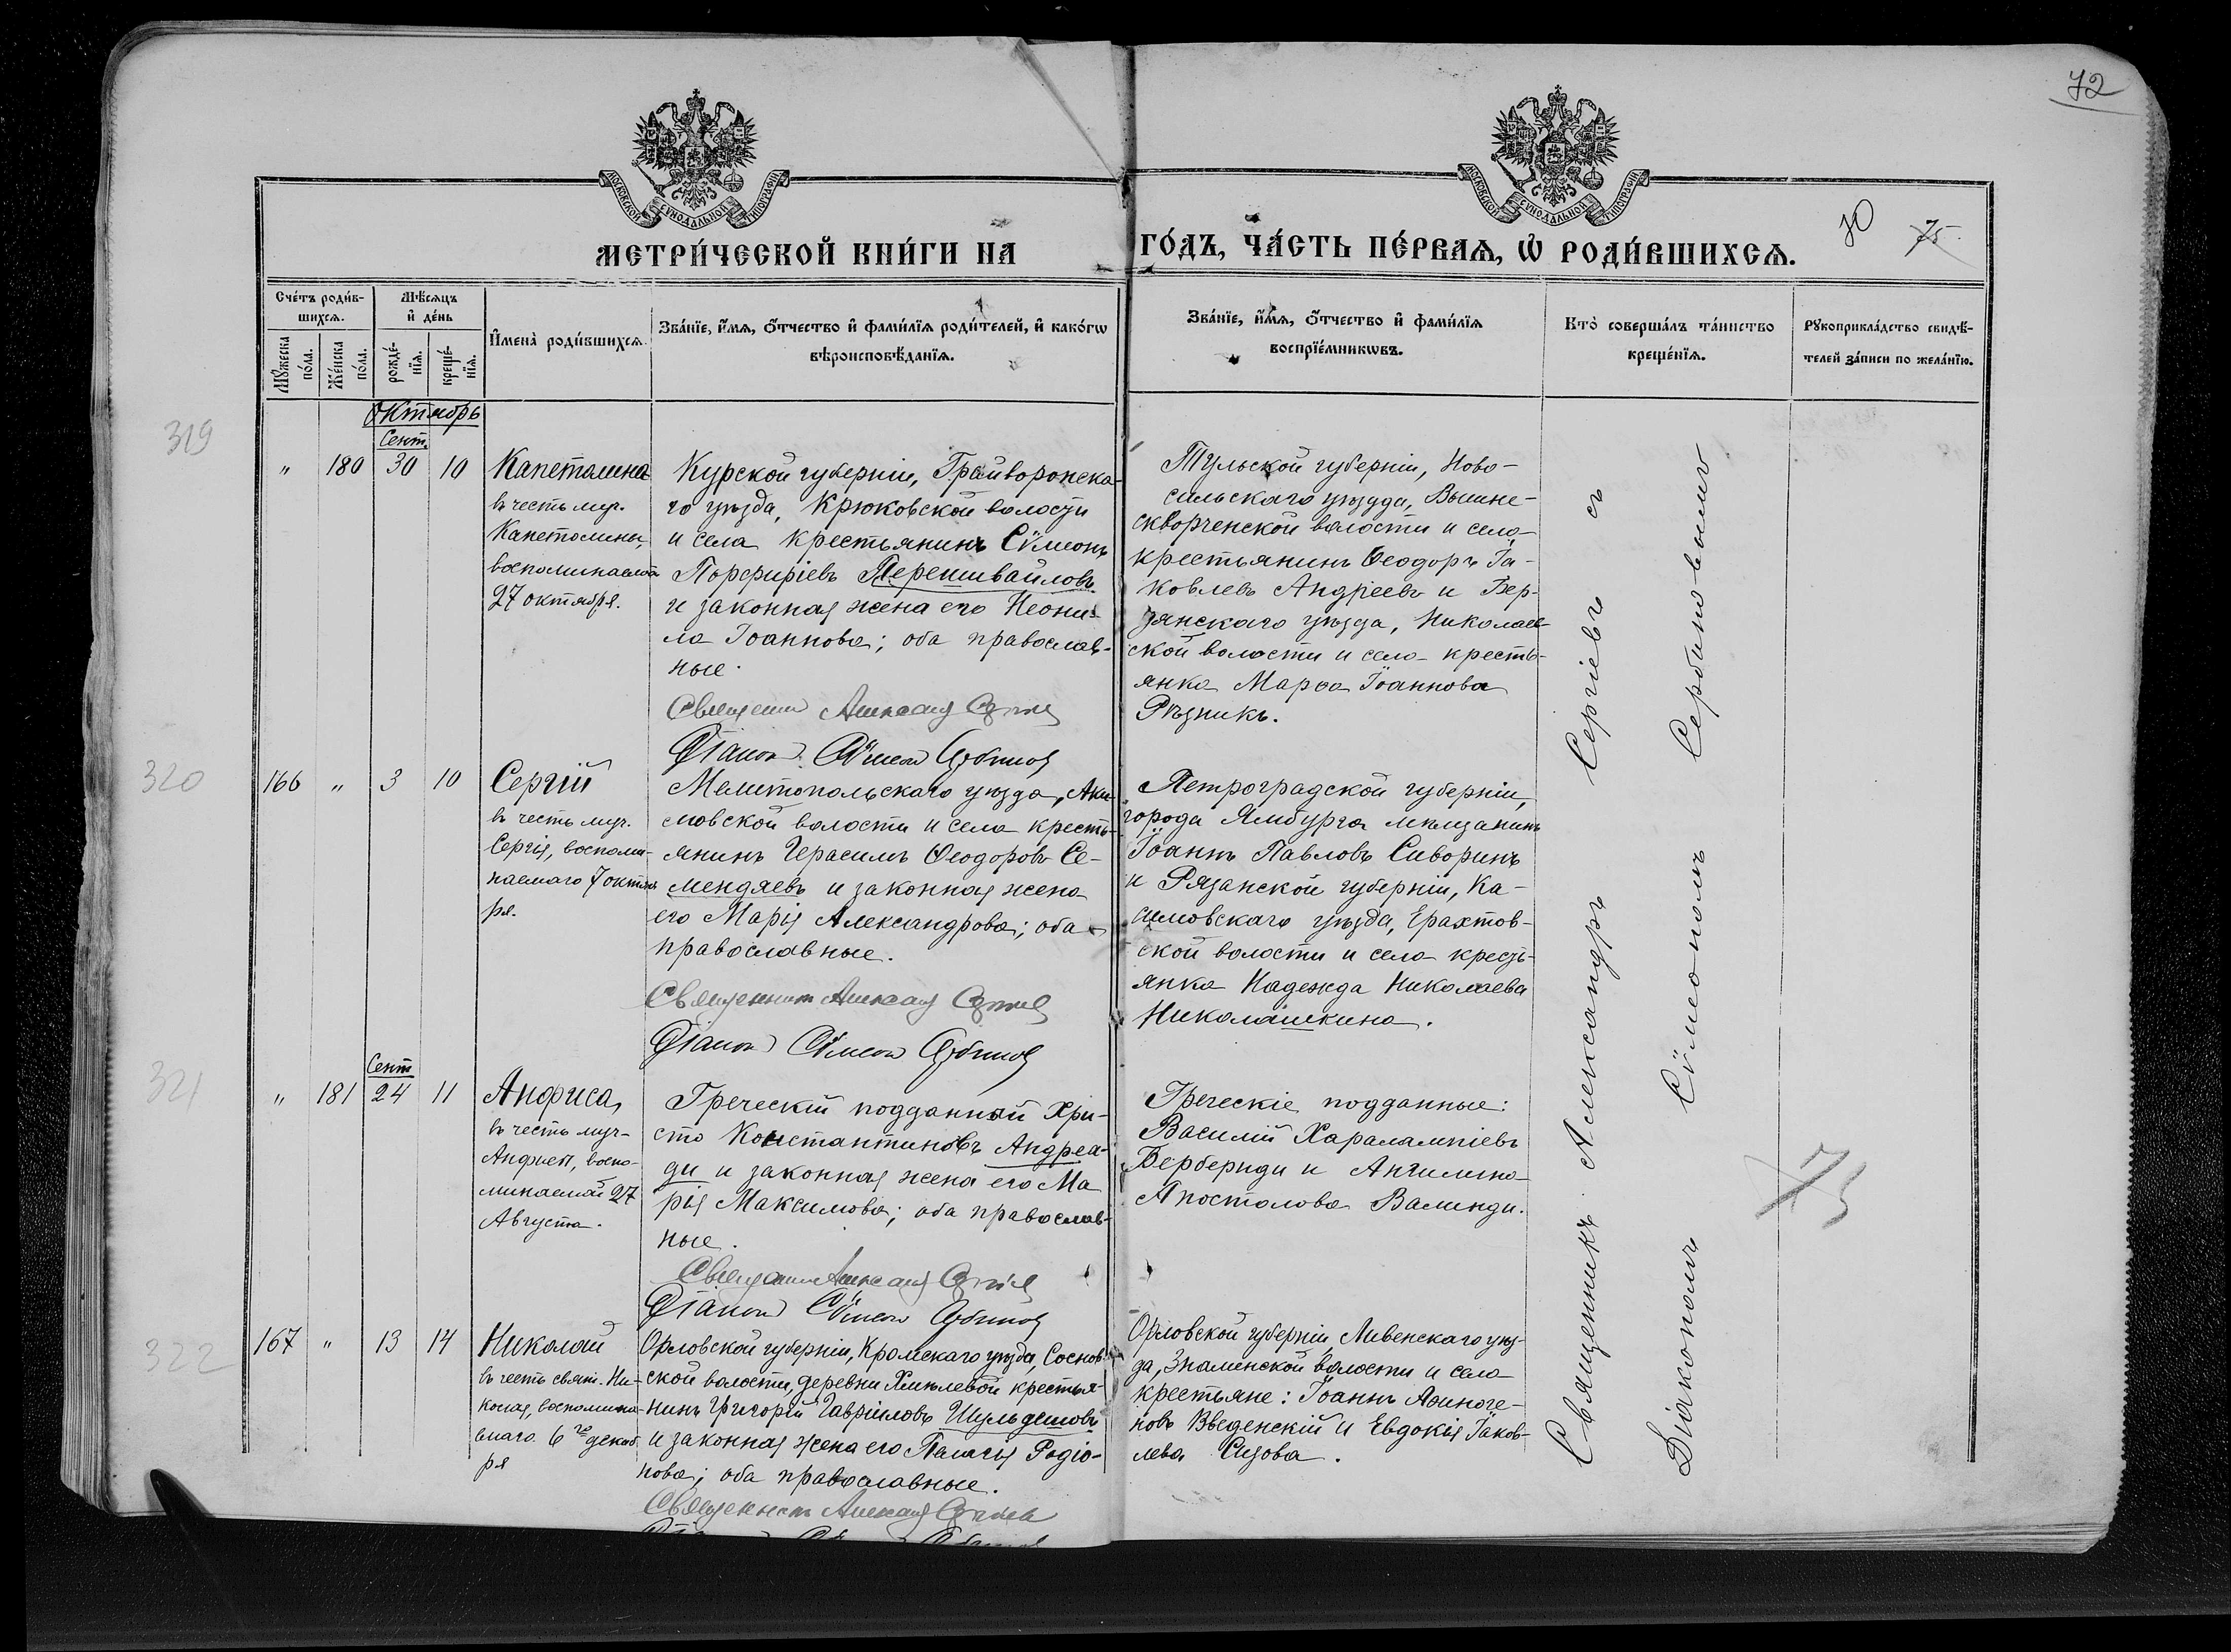 72
МОСКОВСКОЙ СУНОДАЛЬНОЙ ТИПОГРАФІИ
МОСКОВСКОЙ СУНОДАЛЬНОЙ ТИПОГРАФІИ
МЕТРИ́ЧЕСКОЙ КНИ́ГИ НА
ГО́ДЪ, ЧА́СТЬ ПЕ́РВАѦ, Ѡ҆ РОДИ́ВШИХСѦ.
70 75
Сче́тъ роди́в-
шихсѧ.
Мѣ́сѧцъ
и҆ де́нь
Мꙋ́жеска
по́ла.
Же́нска
по́ла.
рожде́-
нїѧ.
креще́-
нїѧ.
И҆мена̀ роди́вшихсѧ.
Зва́нїе, и҆́мѧ, ѻ҆́тчество и҆ фами́лїѧ роди́телей, и҆ како́гѡ
вѣроисповѣ́данїѧ.
Зва́нїе, и҆́мѧ, ѻ҆́тчество и҆ фами́лїѧ
воспрїе́мникѡвъ.
Кто̀ соверша́лъ та́инство
креще́нїѧ.
Рꙋкоприкла́дство свидѣ́-
телей за́писи по жела́нїю.
Октябрь
319
Сент.
" 180 30 10
Капетолина
въ честь муч.
Капетолины,
27 октября.
Курской губерніи, Грайворонска-
го уѣзда, Крюковской волости
и села крестьянинъ Сѵмеонъ
Порфиріевъ Перешивайловъ
и законная жена его Неони-
ла Іоаннова; оба православ-
ные.
Священник Александр Сергиев
Діакон Сѵмеон Сербинов
Тульской губерніи, Ново-
сильскаго уѣзда, Вышне-
скворченской волости и села
крестьянинъ Ѳеодоръ Іа-
ковлевъ Андреевъ и Бер-
дянскаго уѣзда, Николаев-
ской волости и села кресть-
янка Марѳа Іоаннова
Рѣзникъ.
320
166 " 3 10
Сергій
въ честь муч.
Сергія, воспоми-
наемаго 7 октяб-
ря.
Мелитопольскаго уѣзда, Аки-
мовской волости и села кресть-
янинъ Герасимъ Ѳеодоровъ Се-
мендяевъ и законная жена
его Марія Александрова; оба
православные.
Священник Александр Сергиев
Діакон Сѵмеон Сербинов
Петроградской губерніи,
города Ямбурга мѣщанинъ
Іоаннъ Павловъ Сиворинъ
и Рязанской губерніи, Ка-
симовскаго уѣзда, Ерахтов-
ской волости и села кресть-
янка Надежда Николаева
Николашкина.
321
Сент
" 181 24 11
Анфиса,
въ честь муч-
Анфисы, воспо-
минаемой 27
Августа.
Греческій подданный Хри-
сто Константиновъ Андреа-
ди и законная жена его Ма
рія Максимова; оба православ-
ные.
Священник Александр Сергиев
Діакон Сѵмеон Сербинов
Греческіе подданные:
Василій Харалампіевъ
Вербериди и Ангелина
Апостолова Валинди.
322
167 " 13 14
Николай
въ честь свят. Ни-
колая, воспомина-
емаго 6го декаб
ря
Орловской губерніи, Кромскаго уѣзда, Соснов-
ской волости, деревни Хмѣлевой крестья-
нинъ Григорій Гавриловъ Шульдешовъ
и законная жена его Пелагія Родіо-
нова; оба православные.
Священник Александр Сергиев
Орловской губерніи, Ливенскаго уѣз-
да, Знаменской волости и села
крестьяне: Іоаннъ Аѳиноге-
новъ Введенскій и Евдокія Іаков-
лева Сизова.
Священникъ Александръ Сергіевъ съ
Діакономъ Сѵмеономъ Сербиновымъ
75